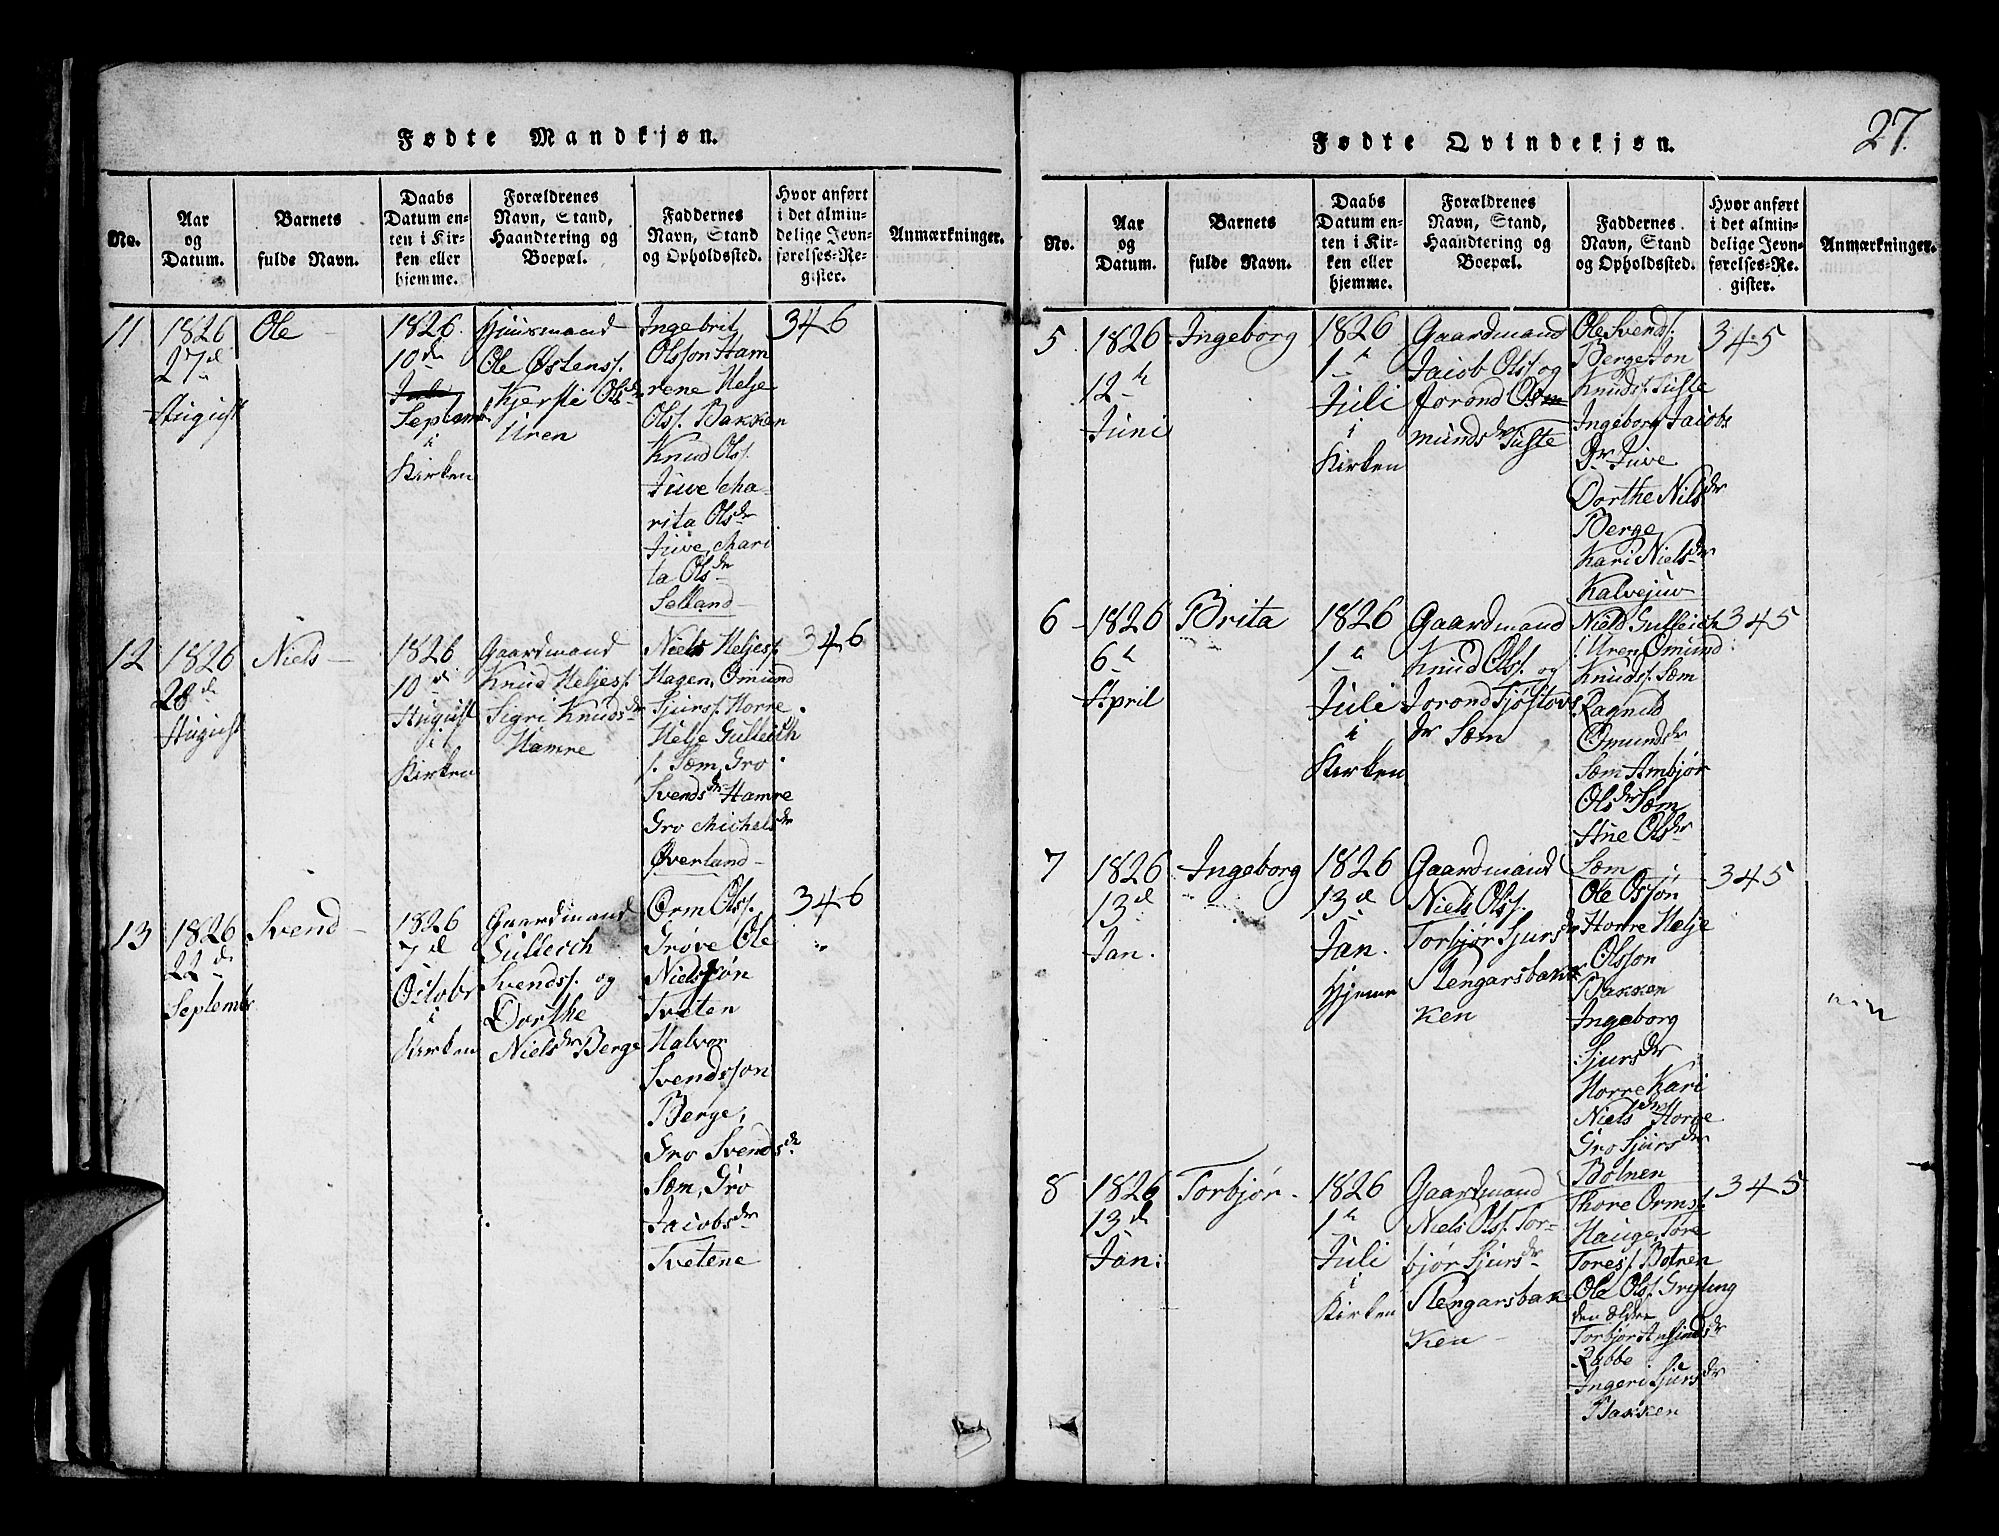 Fødte Mandkjøn.
No.
Aar
og
Datum.
Barnets
fulde Navn.
Daabs
Datum en-
ten i Kir-
ken eller
hjemme.
Forældrenes
Navn, Stand,
Haandtering og
Boepæl.
Faddernes
Navn, Stand
og Opholdssted.
Hvor anført
i det almin-
delige Jevn-
førelses-Re-
gister.
Anmærkninger.
11
1826
27d
August
Ole
1826
10de
Septemb
i
Kirken
Huusmand
Ole Østenss.
Kjersti Olsdr
Uren
Ingebrit
Olsson Ham
rene Helje
Olss. Bakken
Knud Olss.
Juve Cha-
rita Olsdr
Juve, Mari
ta Olsdr
Selland
346
12
1826
28d
August
Niels
1826
10d
August
i
Kirken
Gaardmand
Knud Heljess.
Sigri Knudsdr
Hamre
Niels Heljess.
Hagen, Omund
Sjurss. Horre
Helje Gulleich
s. Sæm, Gro
Svendsdr Hamre
Gro Michelsdr
Øverland
346
13
1826
22d
September
Svend
1826
7d
Octobr
i
Kirken
Gaardmand
Gulleich
Svendss. og
Dorthe
Nielsdr Berge
Orm Olss.
Grøve Ole
Nielssøn
Tveten
Halvor
Svendsson
Berge,
Gro Svendsdr
Sæm, Gro
Jacobsdr
Tvetene
346
27.
Fødte Qvindekjøn.
No.
Aar
og
Datum.
Barnets
fulde Navn.
Daabs
Datum en-
ten i Kir-
ken eller
hjemme.
Forældrenes
Navn, Stand,
Haandtering og
Boepæl.
Faddernes
Navn, Stand
og Opholdssted.
Hvor anført
i det almin-
delige Jevn-
førelses-Re-
gister.
Anmærkninger.
5
1826
12te
Juni
Ingeborg
1826
1te
Juli
i
Kirken
Gaardmand
Jacob Olss og
Jorond Os
mundsdr Tufte
Ole Svendss.
Berge Jon
Knudss. Tufte
Ingeborg Jacobs
Dr Juve
Dorthe Nilsdr
Berge
Kari Nielsdr
Kalvejuv
345
6
1826
6te
April
Brita
1826
1te
Juli
i
Kirken
Gaardmand
Knud Olss. og
Jorond Tjøstovs
dr Sæm
Niels Gulleich
s. Uren, Omund
Knudss. Sæm
Ragnild
Omundsdr
Sæm Ambjør
Olsdr Sæm
Ane Olsdr
Sæm
345
7
1826
13d
Jan.
Ingeborg
1826
13d
Jan.
Hjeme
Gaardmand
Niels Olss.
Torbjør Sjursdr
Rengarsbak
ken
Ole Ossøn
Horre Helje
Olsson
Bakken
Ingeborg
Sjursdr
Horre Kari
Nielsdr Horre
Gro Sjursdr
Botnen
345
8
1826
13d
Jan:
Torbjør
1826
1te
Juli
i
Kirken
Gaardmand
Niels Olss. Tor-
bjør Sjursdr
Rengarsbak
ken
Thore Ormss.
Hauge, Tore
Toress. Botnen
Ole Olss.
den ældre
Torbjør
Rabbe
Ingeri Sjursdr
Bakken
345